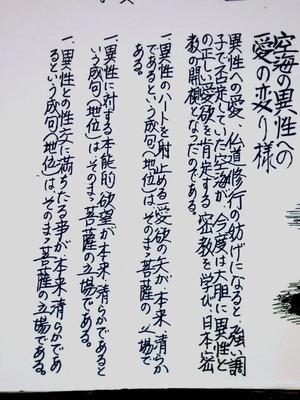 空海の異性への
愛の変り様
異性への愛、仏道修行の妨げになると、強い調
子で否定していた空海が、今度は大胆に異性と
の正しい愛欲を肯定する密教を学び、日本密
教の開祖となったのである。
一、異性のハートを射止める愛欲の矢が本来清らか
であるという成句(地位)は、そのまゝ菩薩の立場で
ある。
一、異性に対する本能的欲望が本来清らかであると
いう成句(地位)は、そのまゝ菩薩の立場である。
一、異性との性交に満ちたる事が本来清らかであ
るという成句(地位)は、そのまゝ菩薩の立場である。